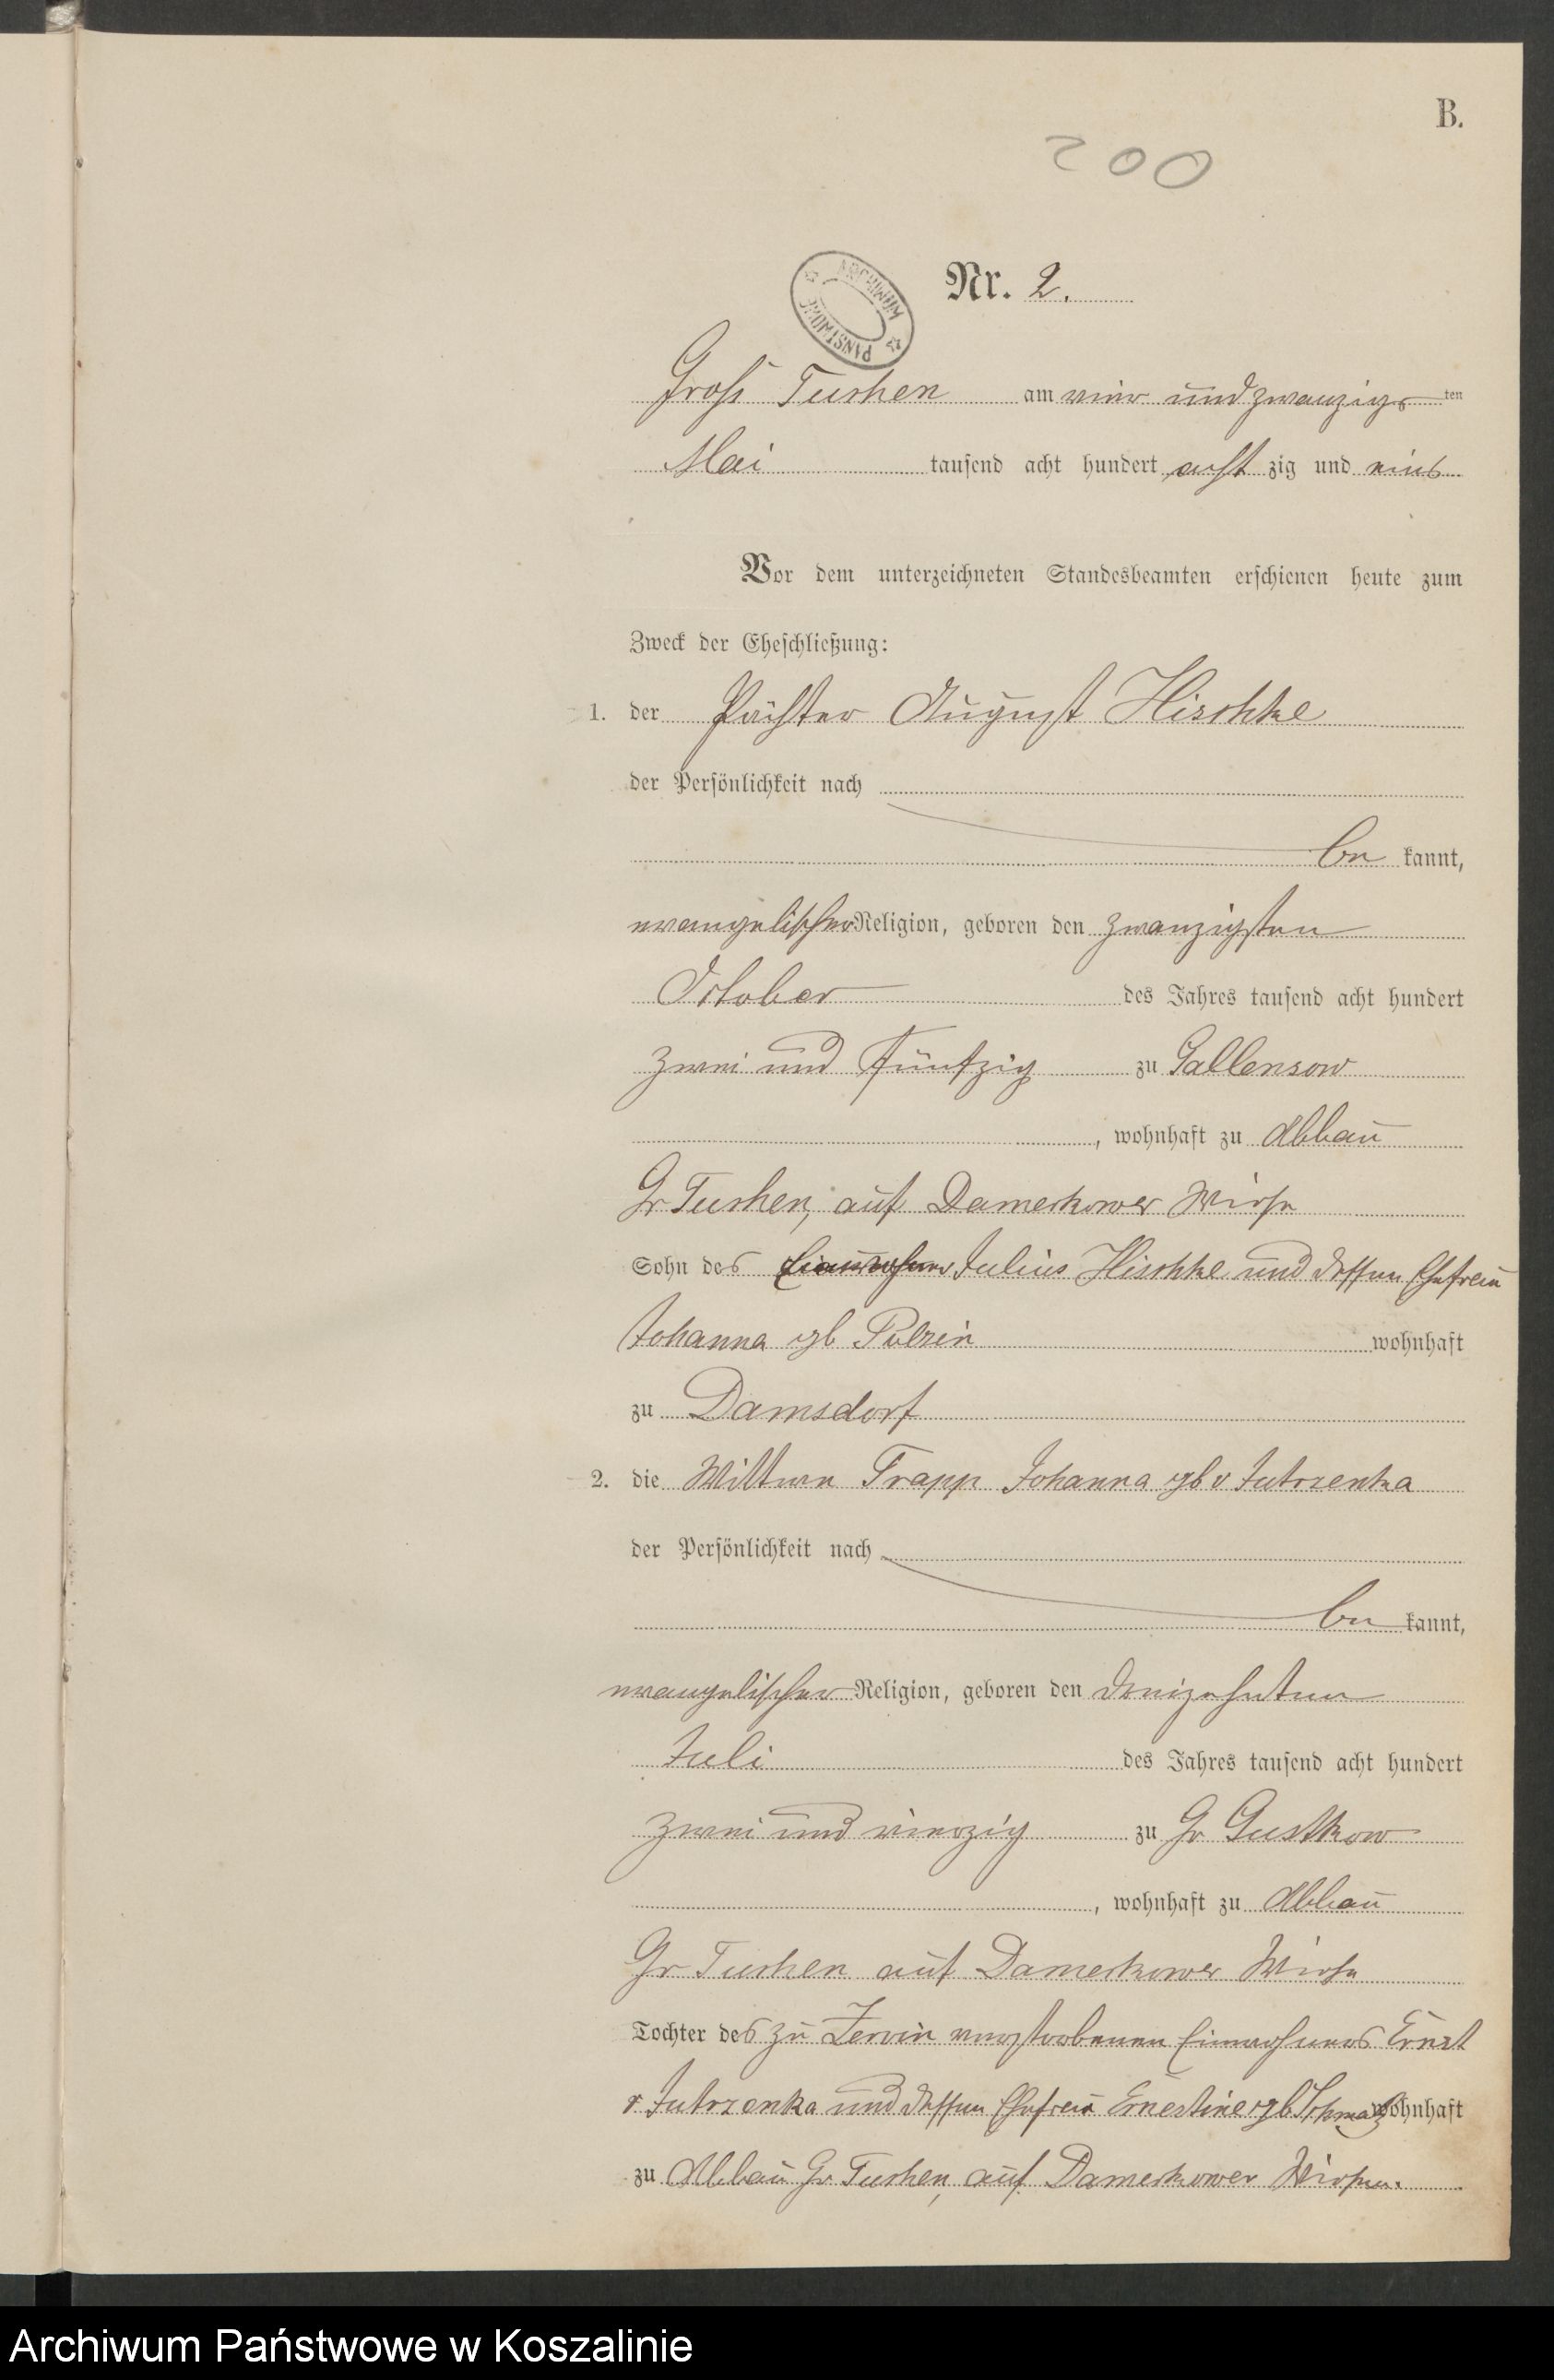 B.
200
ARCHIWUM PAŃSTWOWE
Nr. 2.
Gross Tuchen am vier und zwanzigsten
Mai tausend acht hundert acht zig und eins
Vor dem unterzeichneten Standesbeamten erschienen heute zum
Zweck der Eheschließung:
1. der Pächter August Hischke
der Persönlichkeit nach
be kannt,
evangelischer Religion, geboren den zwanzigsten
October des Jahres tausend acht hundert
zwei und fünfzig zu Gallensow
, wohnhaft zu Abbau
Gr Tuchen, auf Damerkower Wiese
Sohn des Einwohners Julius Hischke und dessen Ehefrau
Johanna gb wohnhaft
zu Damsdorf
2. die Wittwe Trapp Johanna gb v Jutrzenka
der Persönlichkeit nach
be kannt,
evangelischer Religion, geboren den dreizehnten
Juli des Jahres tausend acht hundert
zwei und vierzig zu Gr Gustkow
, wohnhaft zu Abbau
Gr Tuchen auf Damerkower Wiese
Tochter des zu Zerrin verstorbenen Einwohners Ernst
v Jutrzenka und dessen Ehefrau Ernestine gb wohnhaft
zu Abbau Gr Tuchen, auf Damerkower Wiesen.
Archiwum Państwowe w Koszalinie